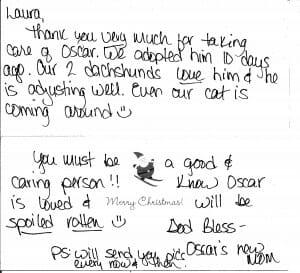 Laura,
Thank you very much for taking
care of Oscar. We adopted him 10 days
ago. Our 2 dachshunds love him & he
is adjusting well. Even our cat is
coming around ☺
You must be a good &
caring person!! Know Oscar
is loved & Merry Christmas! will be
spoiled rotten ☺ God Bless-
Oscar's new
Mom
PS: will send you pic's
every now & then!